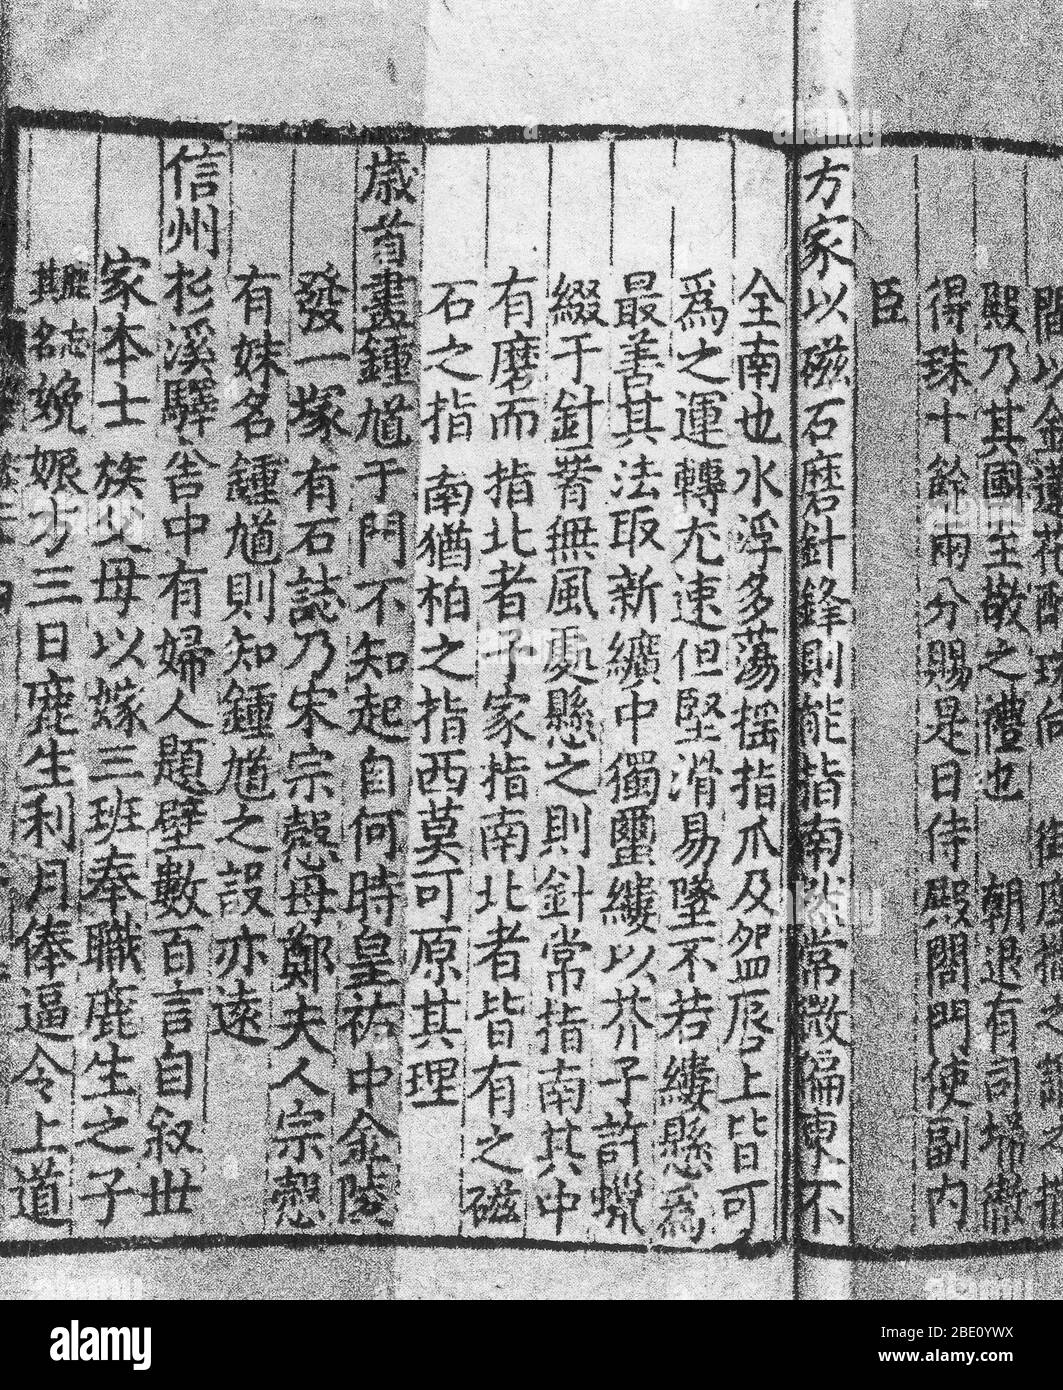 閣以金蓮花酌
殿乃其國至敬之禮也 朝退有司掃徹
得珠十餘兩分賜是日侍殿閣門使副內
臣
方家以磁石磨針鋒則能指南然常微偏東不
全南也水浮多蕩搖指爪及盌唇上皆可
為之運轉尤速但堅滑易墜不若縷懸為
最善其法取新纊中獨蠒縷以芥子許蠟
綴于針菁無風處懸之則針常指南其中
有磨而指北者予家指南北者皆有之磁
石之指南猶柏之指西莫可原其理
歲首畫鍾馗于門不知起自何時皇祐中金陵
發一塚有石誌乃宋宗愨母鄭夫人宗愨
有妹名鍾馗則知鍾馗之設亦遠
信州杉溪驛舍中有婦人題壁數百言自叙世
家本士族父母以嫁三班奉職鹿生之子
鹿忘其名娩娠方三日鹿生利月俸逼令上道
alamy
Image ID: 2BE0YWX
www.alamy.com